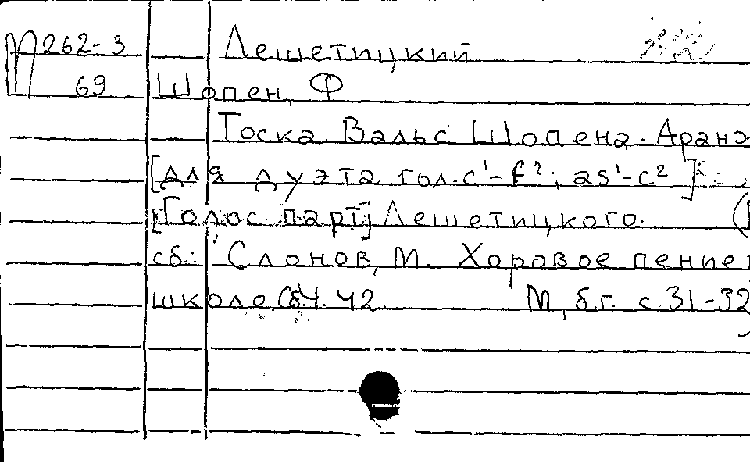 М262-3 Лешетицкий
69 Шопен, Ф
Тоска. Вальс Шопена. Аранж
[для дуэта гол. c¹-f²; as¹-c²]
[Голос. парт] Лешетицкого.
сб.: Слонов, М. Хоровое пение
школе Сб.Ч. 42. М, б.г. с.31-32